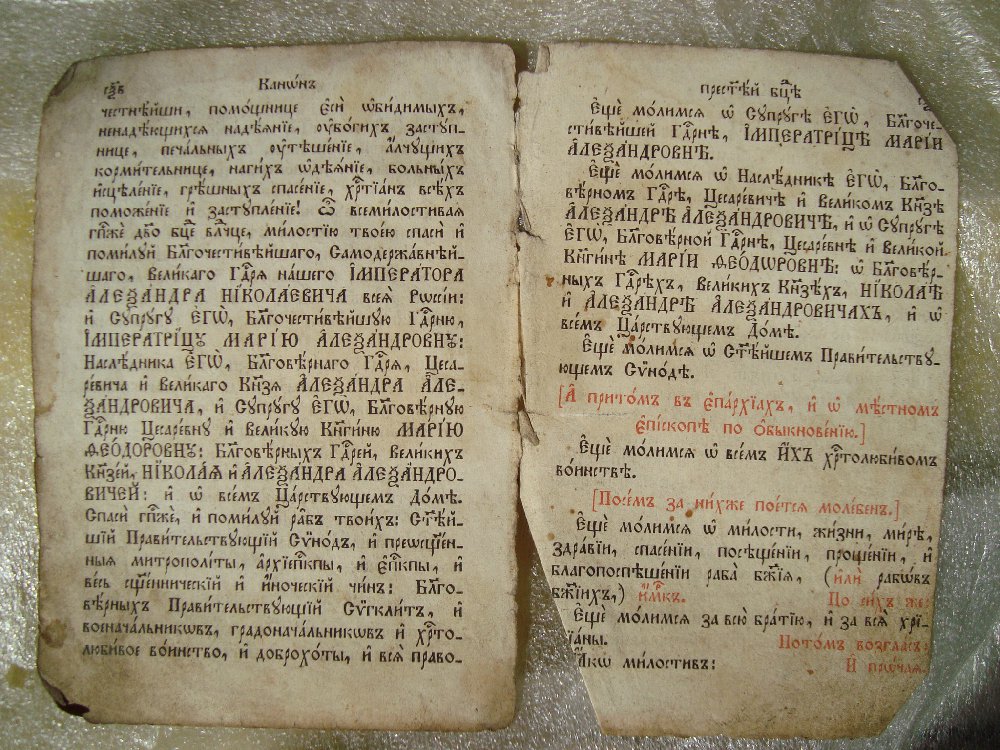 сѯ҃в Канѡ́нъ
честнѣ́йши, помо́щнице є҆сѝ ѡ҆би́димыхъ,
ненадѣ́ющихся надѣ́янїе, ᲂу҆бо́гихъ засту́п-
нице, печа́льныхъ ᲂу҆тѣше́нїе, а҆́лчущихъ
корми́тельнице, наги́хъ ѡ҆дѣ́янїе, больны́хъ
и҆сцѣле́нїе, грѣ́шныхъ спасе́нїе, хрⷭ҇тїа́нъ всѣ́хъ
поможе́нїе и҆ заступле́нїе! Ѽ всеми́лостивая
гпⷭ҇же́ дв҃о бцⷣе влⷣчце, ми́лостїю твое́ю спаси̂ и҆
поми́луй Бл҃гочести́вѣйшаго, Самодержа́внѣй-
шаго, Вели́каго Гдⷭ҇ря на́шего І҆МПЕРА́ТОРА
А҆ЛЕѮА́НДРА НІКОЛА́ЕВИЧА всея̀ Рѡссі́и:
и҆ Супру́гу Є҆гѡ̀, Бл҃гочести́вѣйшую Гдⷭ҇рню,
І҆МПЕРАТРІ́ЦУ МАРІ́Ю А҆ЛЕѮА́НДРОВНУ:
Наслѣ́дника Є҆гѡ̀, Бл҃говѣ́рнаго Гдⷭ҇ря, Цеса-
ре́вича и҆ Вели́каго Кн҃зя А҆ЛЕѮА́НДРА А҆ЛЕ-
ѮА́НДРОВИЧА, и҆ Супру́гу Є҆гѡ̀, Бл҃говѣ́рную
Гдⷭ҇рню Цесаре́вну и҆ Вели́кую Кн҃ги́ню МАРІ́Ю
Ѳ҆ЕО́ДОРОВНУ: Бл҃говѣ́рныхъ Гдⷭ҇рей, Вели́кихъ
Кн҃зе́й, НІКОЛА́Я и҆ А҆ЛЕѮА́НДРА А҆ЛЕѮА́НДРО-
ВИЧЕЙ: и҆ ѡ҆ все́мъ Ца́рствующемъ До́мѣ.
Спасѝ гпⷭ҇же́, и҆ поми́луй ра̂бъ твои́хъ: Ст҃ѣ́й-
шїй Прави́тельствующїй Сѷно́дъ, и҆ преѡсщ҃е́н-
ныя митрополі́ты, а҆рхїепⷭ҇кпы, и҆ є҆пⷭ҇кпы, и҆
ве́сь сщ҃е́нническїй и҆ и҆́ноческїй чи́нъ: Бл҃го-
вѣ́рныхъ Прави́тельствующїй Сѷгкли́тъ, и҆
военача́льникѡвъ, градонача́льникѡвъ и҆ хрⷭ҇то-
люби́вое во́инство, и҆ доброхо́ты, и҆ вся̀ право-
прест҃ѣ́й бцⷣѣ
Є҆щѐ мо́лимся ѡ҆ Супру́гѣ Є҆гѡ̀, Бл҃гоче-
сти́вѣйшей Гдⷭ҇рнѣ, І҆МПЕРАТРІ́ЦѢ МАРІ́И
А҆ЛЕѮА́НДРОВНѢ.
Є҆щѐ мо́лимся ѡ҆ Наслѣ́дникѣ Є҆гѡ̀, Бл҃го-
вѣ́рномъ Гдⷭ҇рѣ, Цесаре́вичѣ и҆ Вели́комъ Кн҃зѣ
А҆ЛЕѮА́НДРѢ А҆ЛЕѮА́НДРОВИЧѢ, и҆ ѡ҆ Супру́гѣ
Є҆гѡ̀, Бл҃гове́рной Гдⷭ҇рнѣ, Цесаре́внѣ и҆ Вели́кой
Кн҃ги́нѣ МАРІ́И Ѳ҆ЕО́ДѠРОВНѢ: ѡ҆ Бл҃говѣ́р-
ныхъ Гдⷭ҇рѣхъ, Вели́кихъ Кн҃зѣхъ, НІКОЛА́Ѣ
и҆ А҆ЛЕѮА́НДРѢ А҆ЛЕѮА́НДРОВИЧАХЪ, и҆ ѡ҆
все́мъ Ца́рствующемъ До́мѣ.
Є҆щѐ мо́лимся ѡ҆ Ст҃ѣ́йшемъ Прави́тельству-
ющемъ Сѷно́дѣ.
[А҆ прито́мъ въ є҆па́рхїахъ, и҆ ѡ҆ мѣ́стномъ
є҆пі́скопѣ по ѻ҆быкнове́нїю.]
Є҆щѐ мо́лимся ѡ҆ все́мъ И҆́ХЪ хрⷭ҇толюби́вомъ
во́инствѣ.
[Посе́мъ за ни́хже пое́тся моле́бенъ.]
Є҆щѐ мо́лимся ѡ҆ ми́лости, жи́зни, ми́рѣ,
здра́вїи, спасе́нїи, посѣще́нїи, проще́нїи, и҆
благопоспѣше́нїи раба̀ бж҃їя, (и҆лѝ рабѡ́въ
бж҃їихъ,) и҆́мⷬ҇къ. По си́хъ же:
Є҆щѐ мо́лимся за всю̀ бра́тїю, и҆ за вся̀ хрⷭ҇тї-
а́ны. Пото́мъ возгла́съ:
Ꙗ҆́кѡ ми́лостивъ: И҆ прѡ́чая.